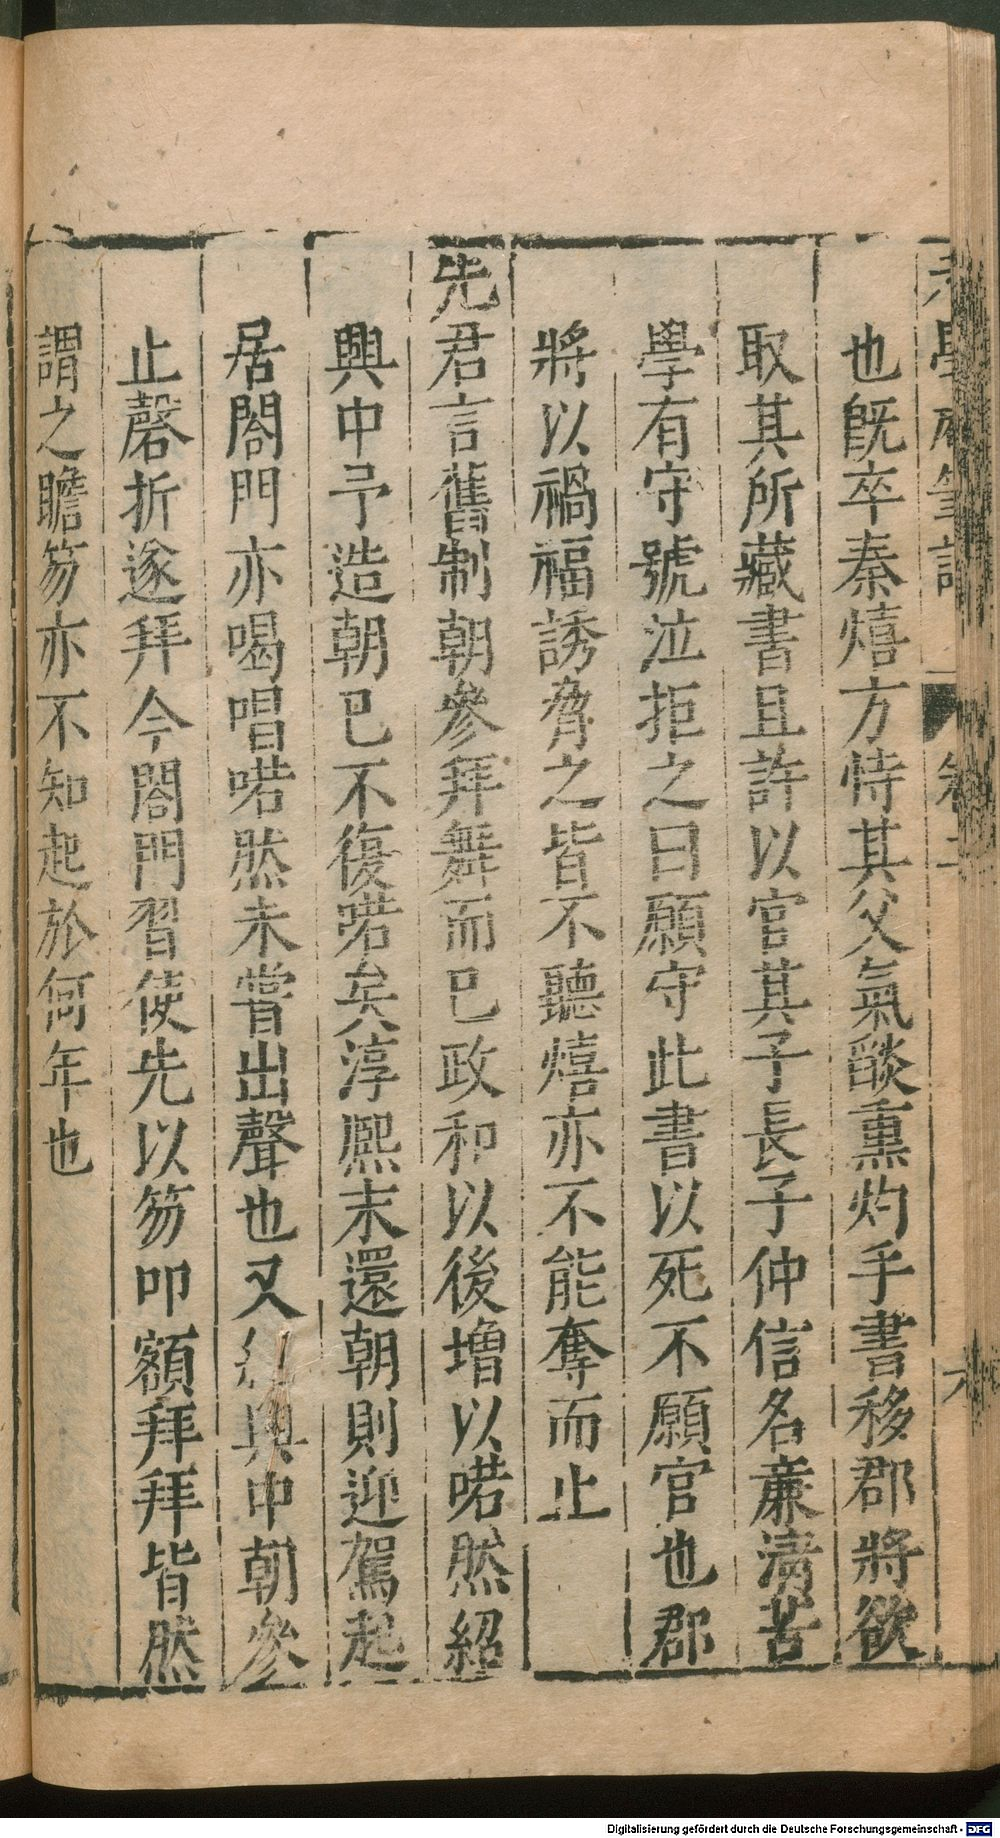 老學庵筆記 卷二 六
也旣卒秦熺方恃其父氣燄熏灼手書移郡將欲
取其所藏書且許以官其子長子仲信名亷清苦
學有守號泣拒之曰願守此書以死不願官也郡
將以禍福誘脅之皆不聽熺亦不能奪而止
先君言舊制朝參拜舞而巳政和以後增以喏然紹
興中予造朝巳不復喏矣淳熈末還朝則迎駕起
居閤門亦喝唱喏然未嘗出聲也又紹興中朝參
止磬折遂拜今閤門習使先以笏叩額拜拜皆然
謂之瞻笏亦不知起於何年也
Digitalisierung gefördert durch die Deutsche Forschungsgemeinschaft - DFG